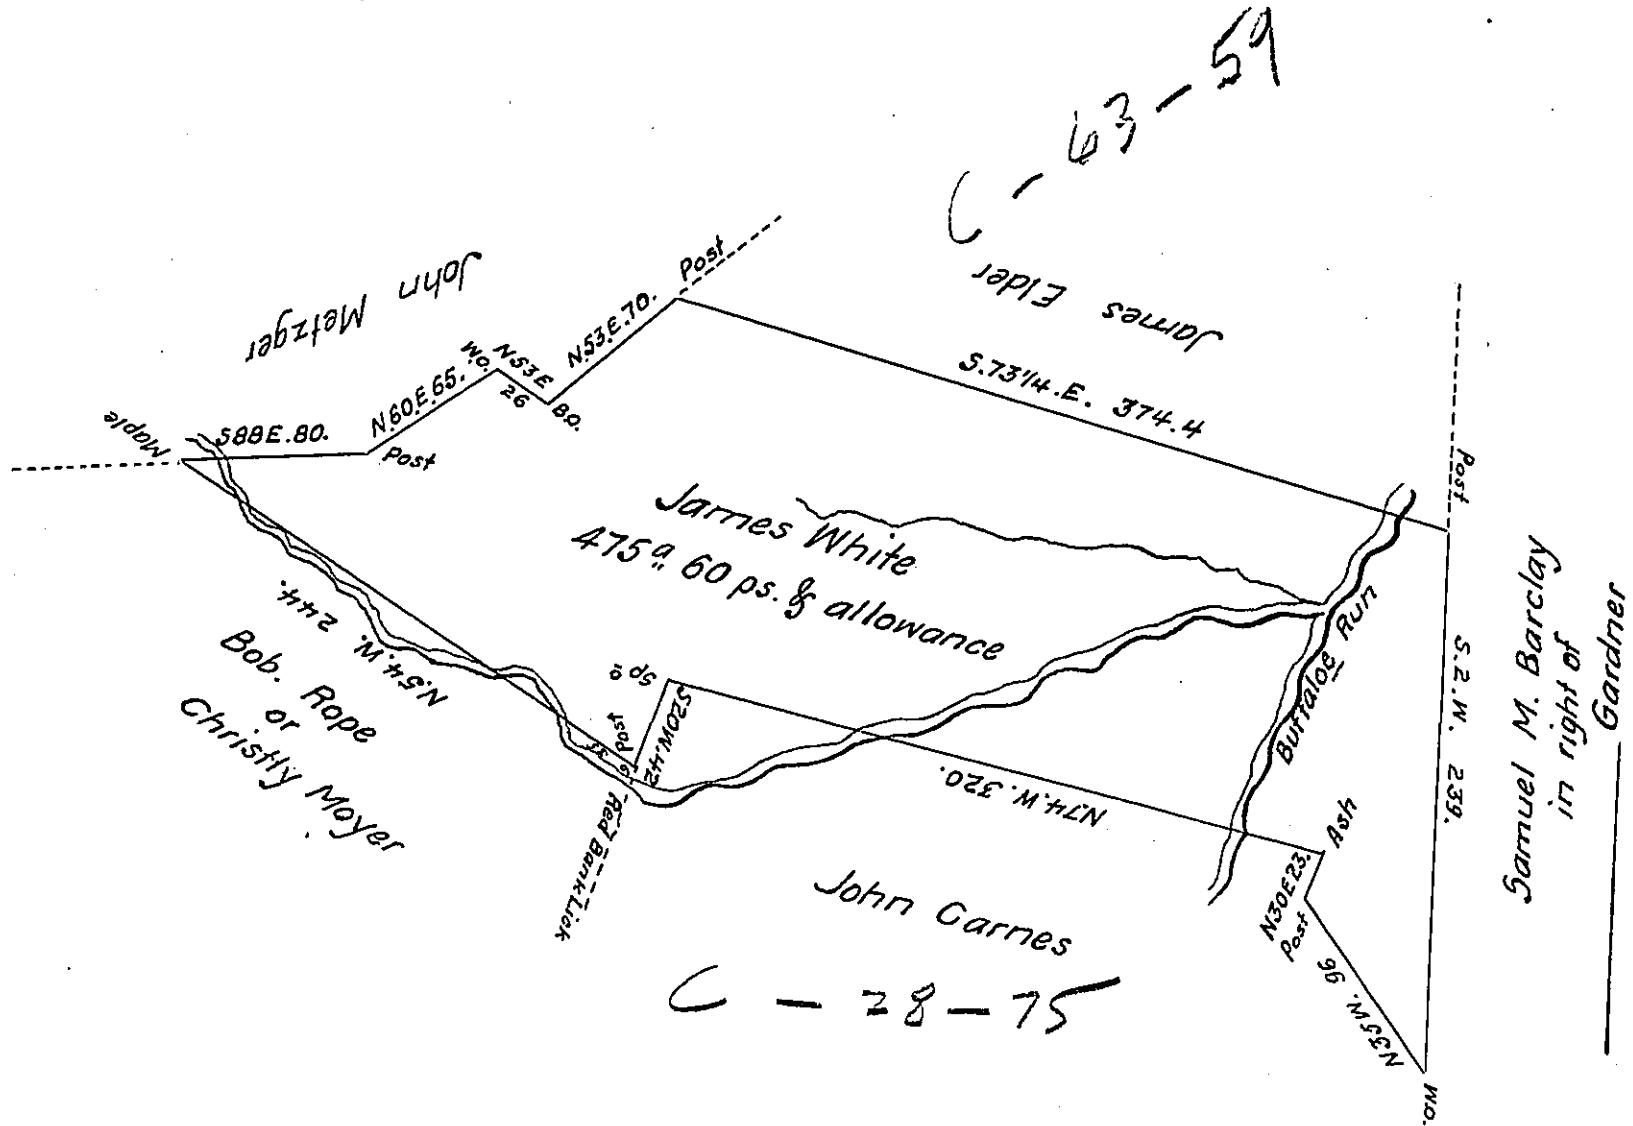 C - 63 - 59
James Elder
John Metzger
Post
N.53.E.70.
N53E
26
B.O.
W.O.
N.60.E.65.
Post
S88E.80.
Maple
S.73¼.E. 374.4
Post
James White
475 a 60 ps. & allowance
N.54.W. 244.
Bob. Rope
or
Christly Moyer
Sp o
S20W.42
Post
Red Bank Lick
N74.W.320.
Buffaloe Run
S.2.W. 239.
Samuel M. Barclay
in right of
Gardner
Ash
N30E23.
Post
N35W. 96
W.O.
John Carnes
C - 28 - 75